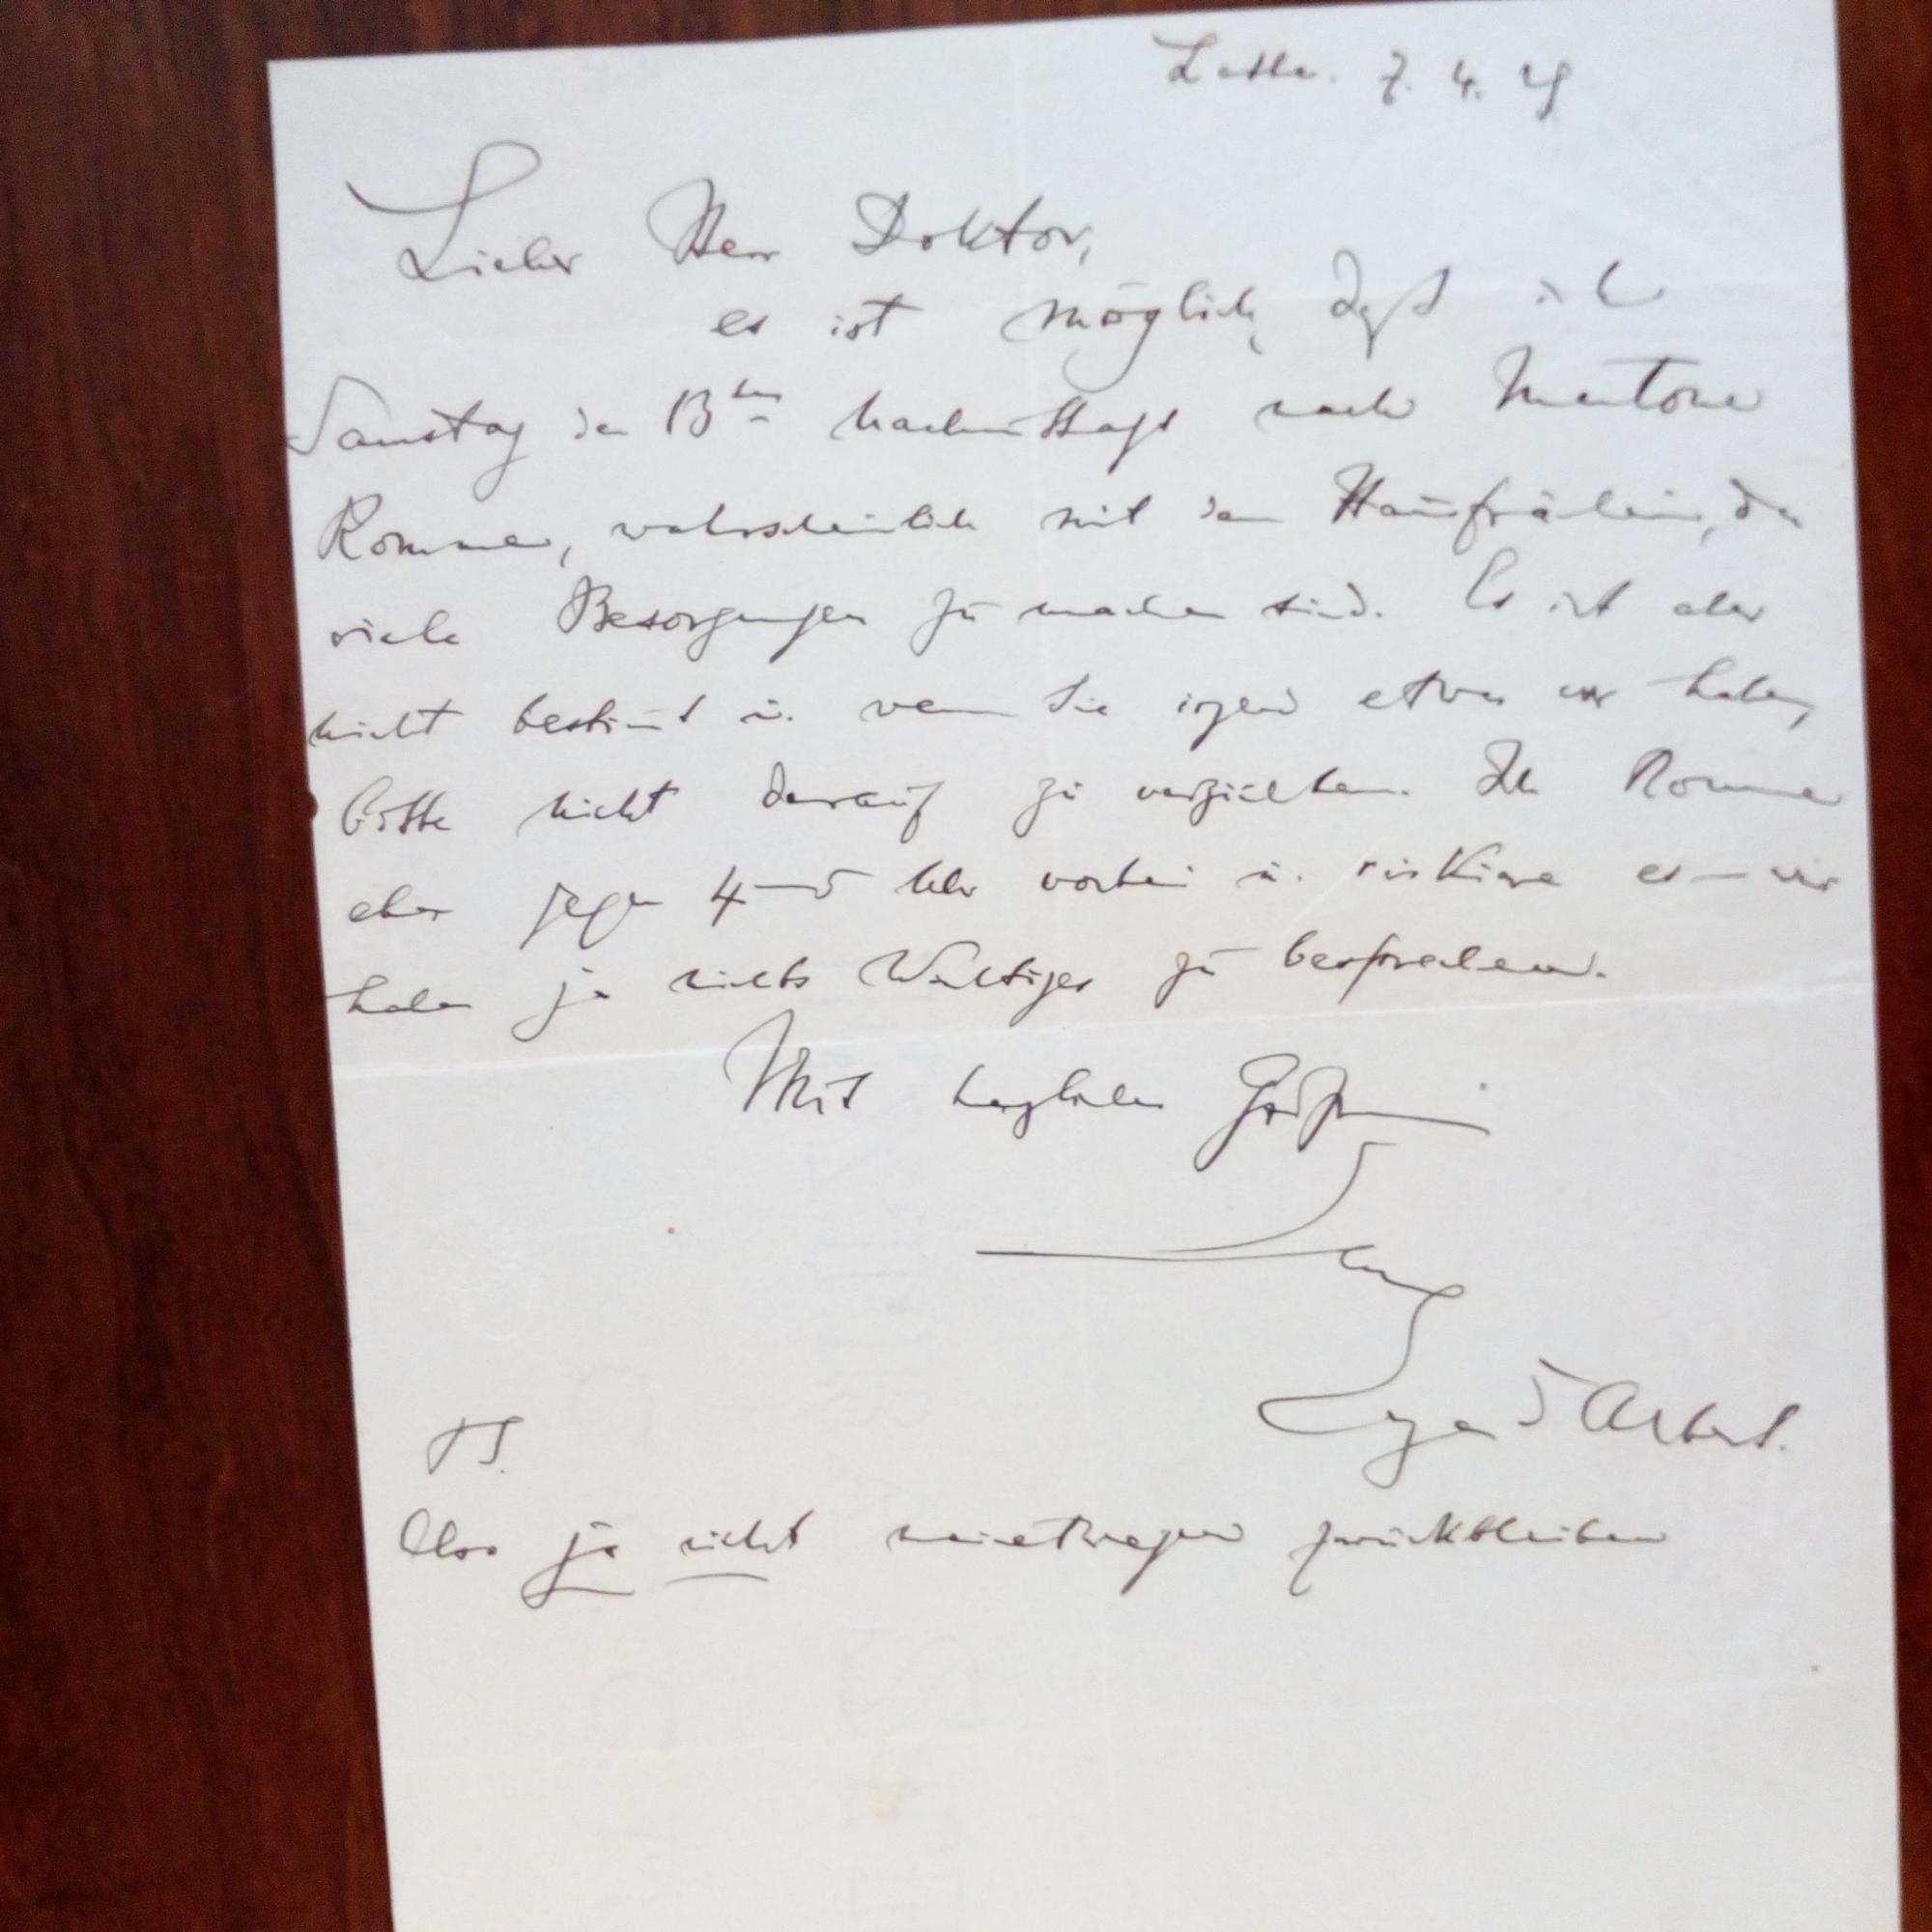 Latte. 7. 4. 29
Lieber Herr Doktor,
es ist möglich, daß ich
Samstag den 13ten Nachmittags nach Mentone
komme, wahrscheinlich mit dem Hausfräulein, da
viele Besorgungen zu machen sind. Es ist aber
nicht bestimt u. wenn Sie irgend etwas vor haben,
bitte nicht darauf zu verzichten. Ich komme
eben gegen 4–5 Uhr vorbei u. riskiere es – wir
haben ja nichts Wichtiges zu besprechen.
Mit herzlichen Grüßen
Ihr
Eugen d'Albert.
PS.
Also ja nicht meinetwegen zurückbleiben